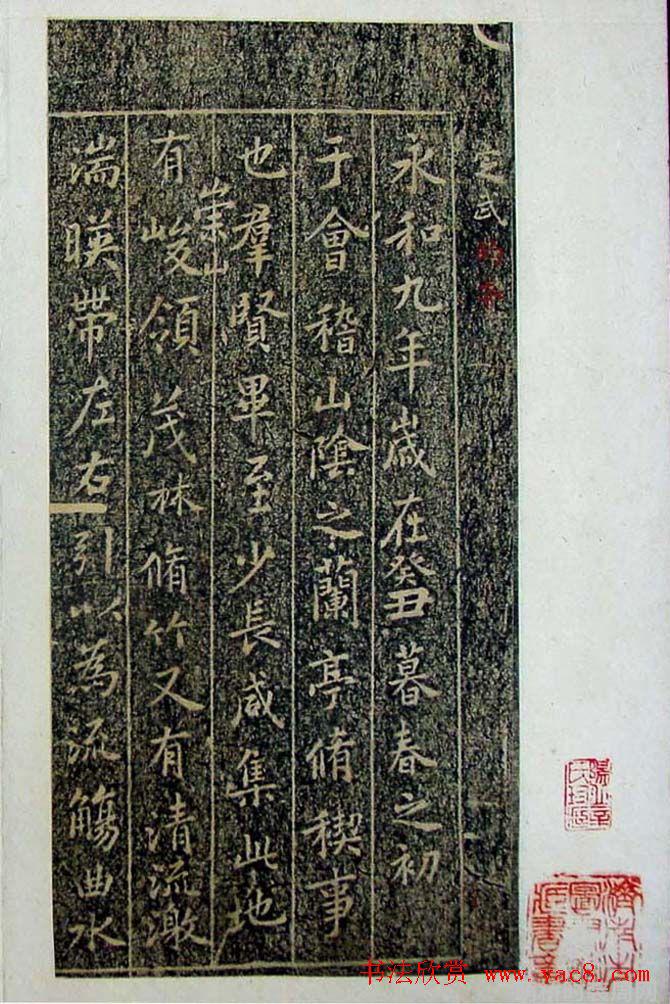 定武
永和九年歲在癸丑暮春之初
于會稽山陰之蘭亭脩稧事
也羣賢畢至少長咸集此地
有峻領茂林脩竹又有清流激
崇山
湍暎帶左右引以為流觴曲水
书法欣赏 www.yac8.com